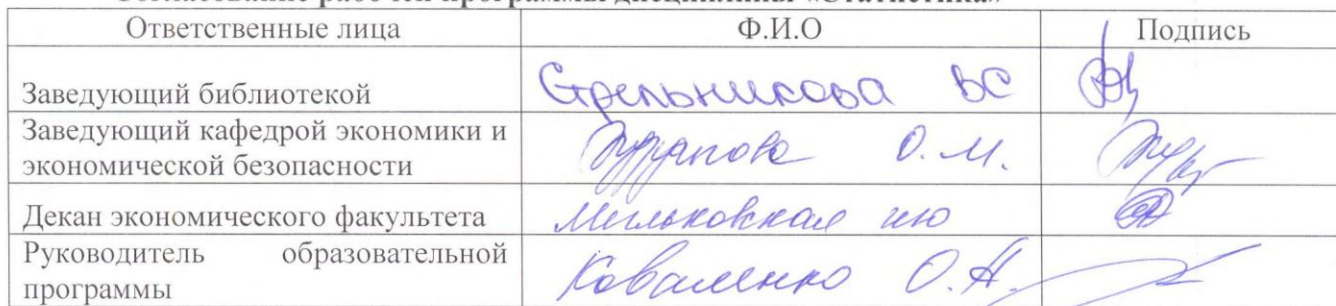 Согласование рабочей программы дисциплины «Статистика»
Ответственные лица Ф.И.О Подпись
Заведующий библиотекой Стрельникова ВС
Заведующий кафедрой экономики и
экономической безопасности О.М.
Декан экономического факультета Мильковская ию
Руководитель образовательной
программы Коваленко О.Н.